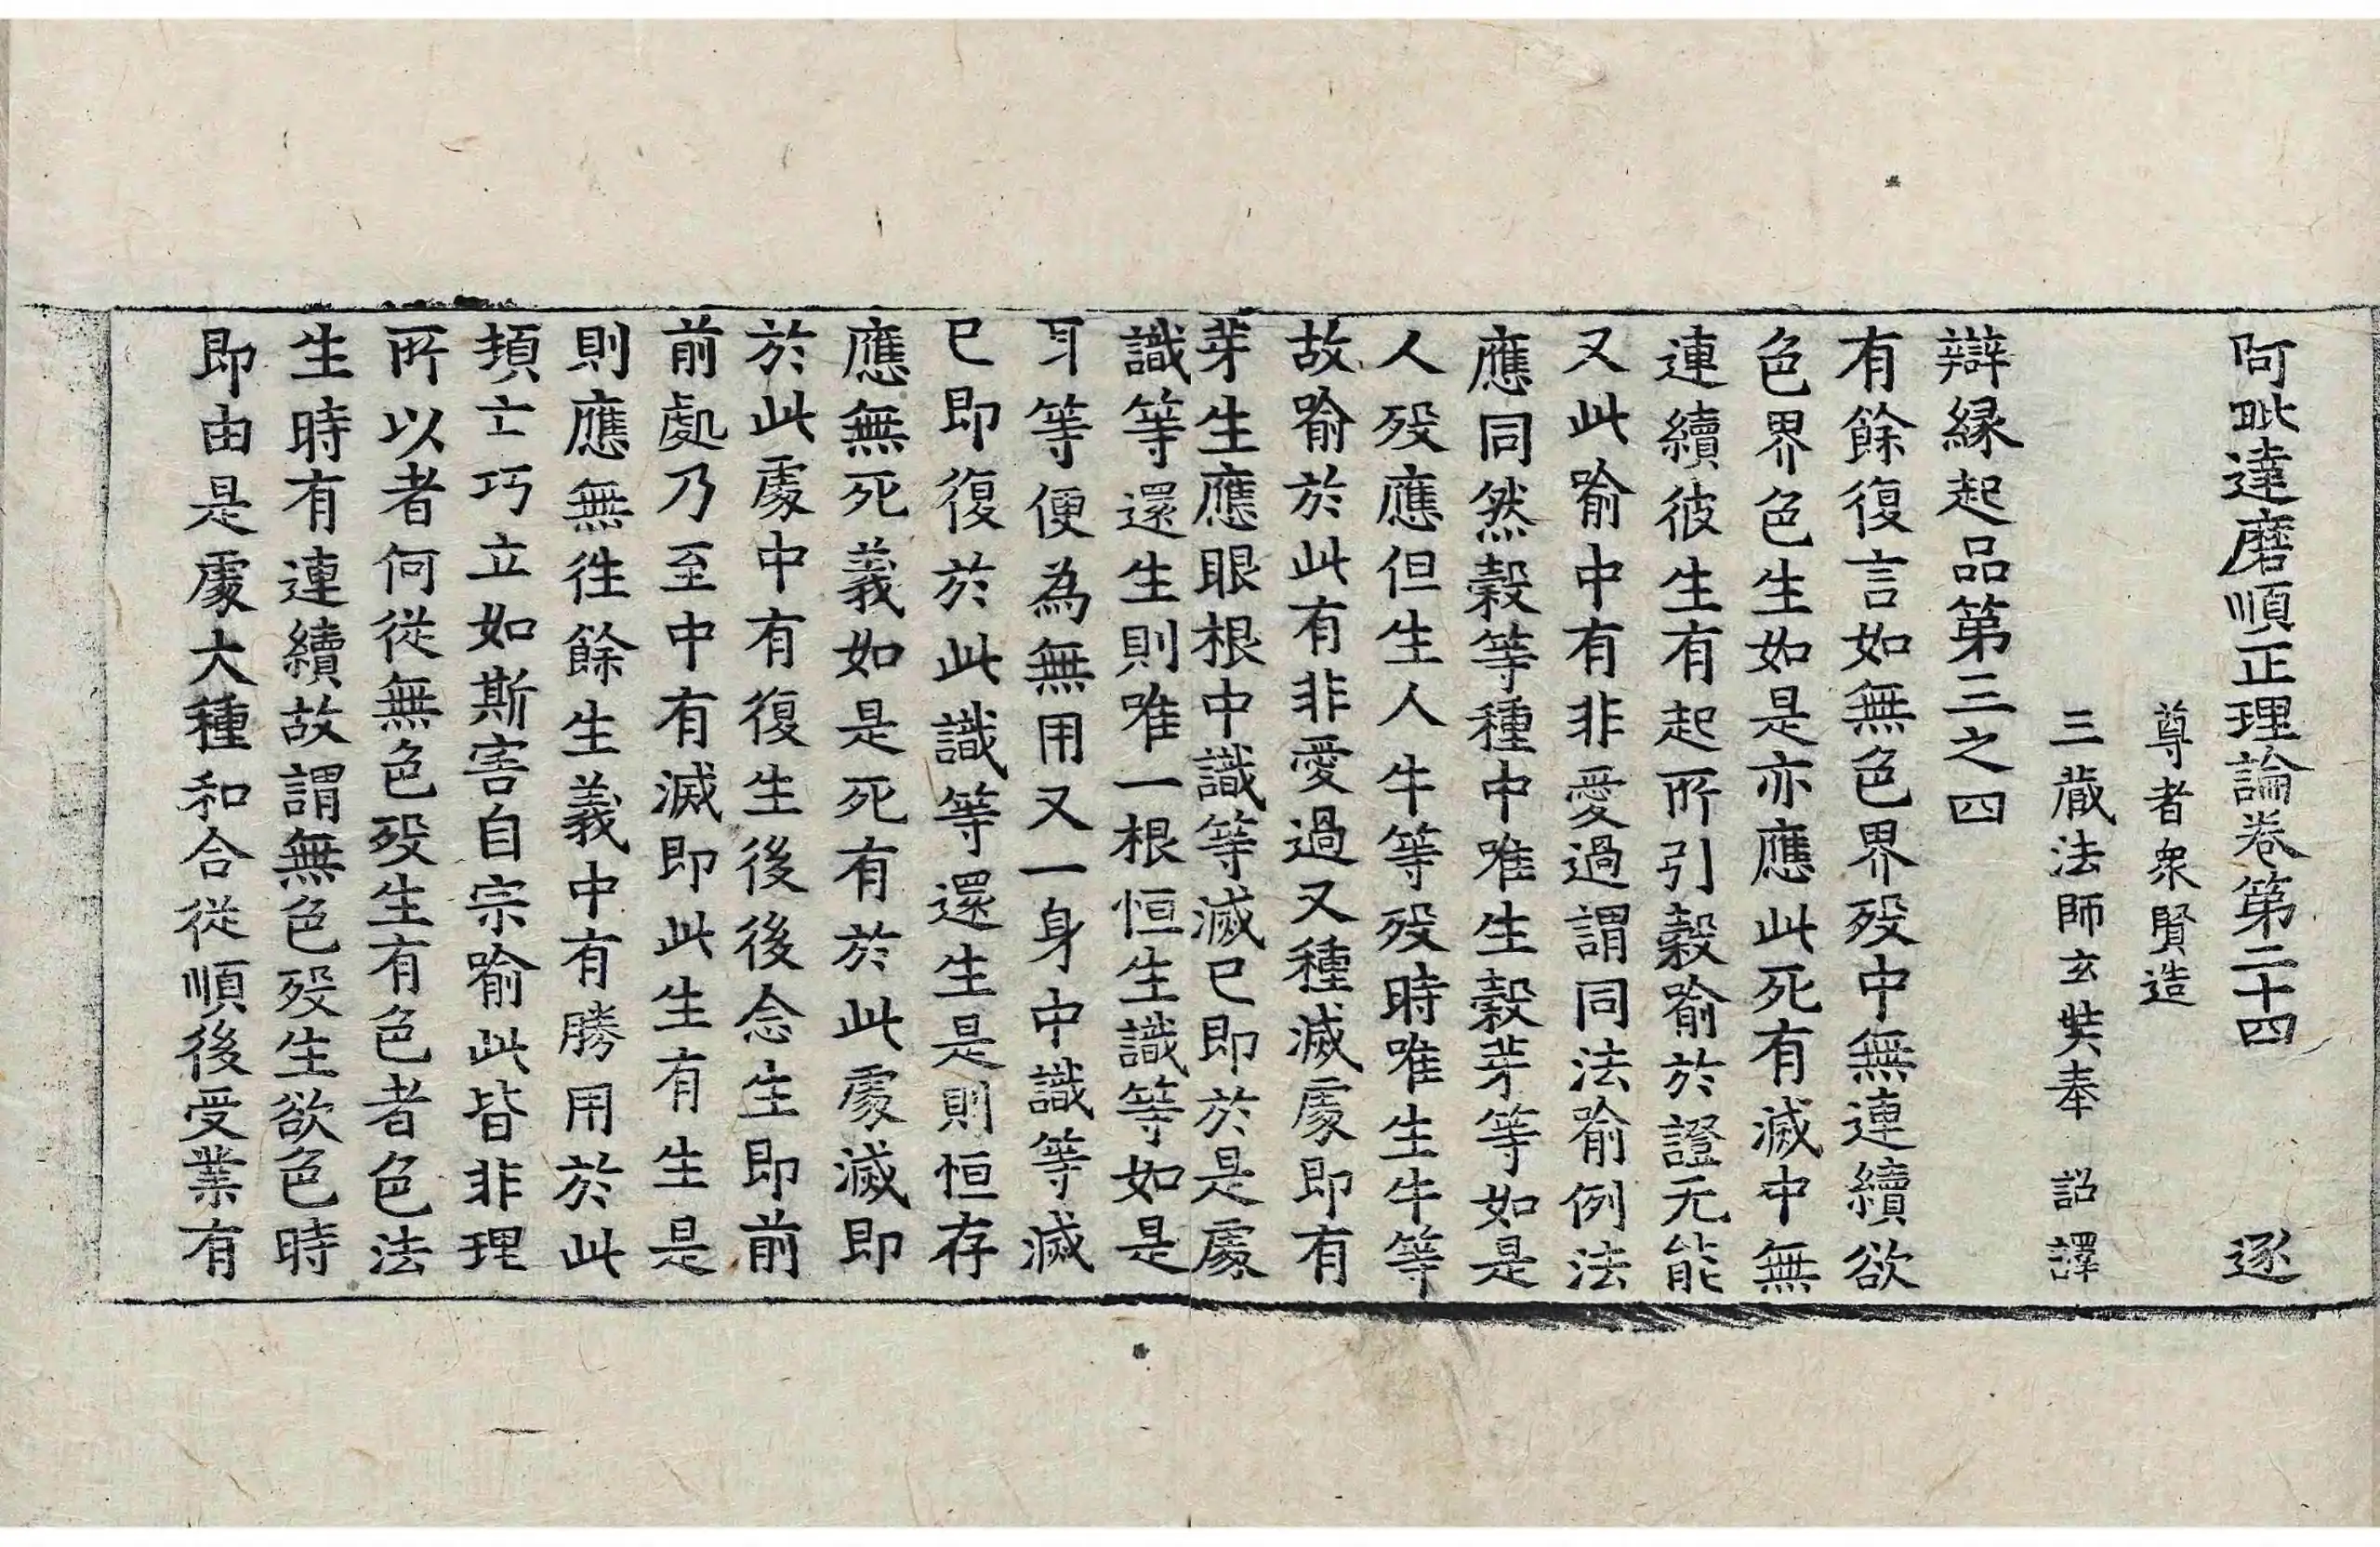 阿毗達磨順正理論卷第二十四 逐
尊者衆賢造
三藏法師玄奘奉 詔譯
辯縁起品第三之四
有餘復言如無色界歿中無連續欲
色界色生如是亦應此死有滅中無
連續彼生有起所引穀喻於證无能
又此喻中有非愛過謂同法喻例法
應同然穀等種中唯生穀芽等如是
人歿應但生人牛等歿時唯生牛等
故喻於此有非愛過又種滅處即有
芽生應眼根中識等滅已即於是處
識等還生則唯一根恒生識等如是
耳等便為無用又一身中識等滅
已即復於此識等還生是則恒存
應無死義如是死有於此處滅即
於此處中有復生後後念生即前
前處乃至中有滅即此生有生是
則應無往餘生義中有勝用於此
頓亡巧立如斯害自宗喻此皆非理
所以者何從無色歿生有色者色法
生時有連續故謂無色歿生欲色時
即由是處大種和合從順後受業有